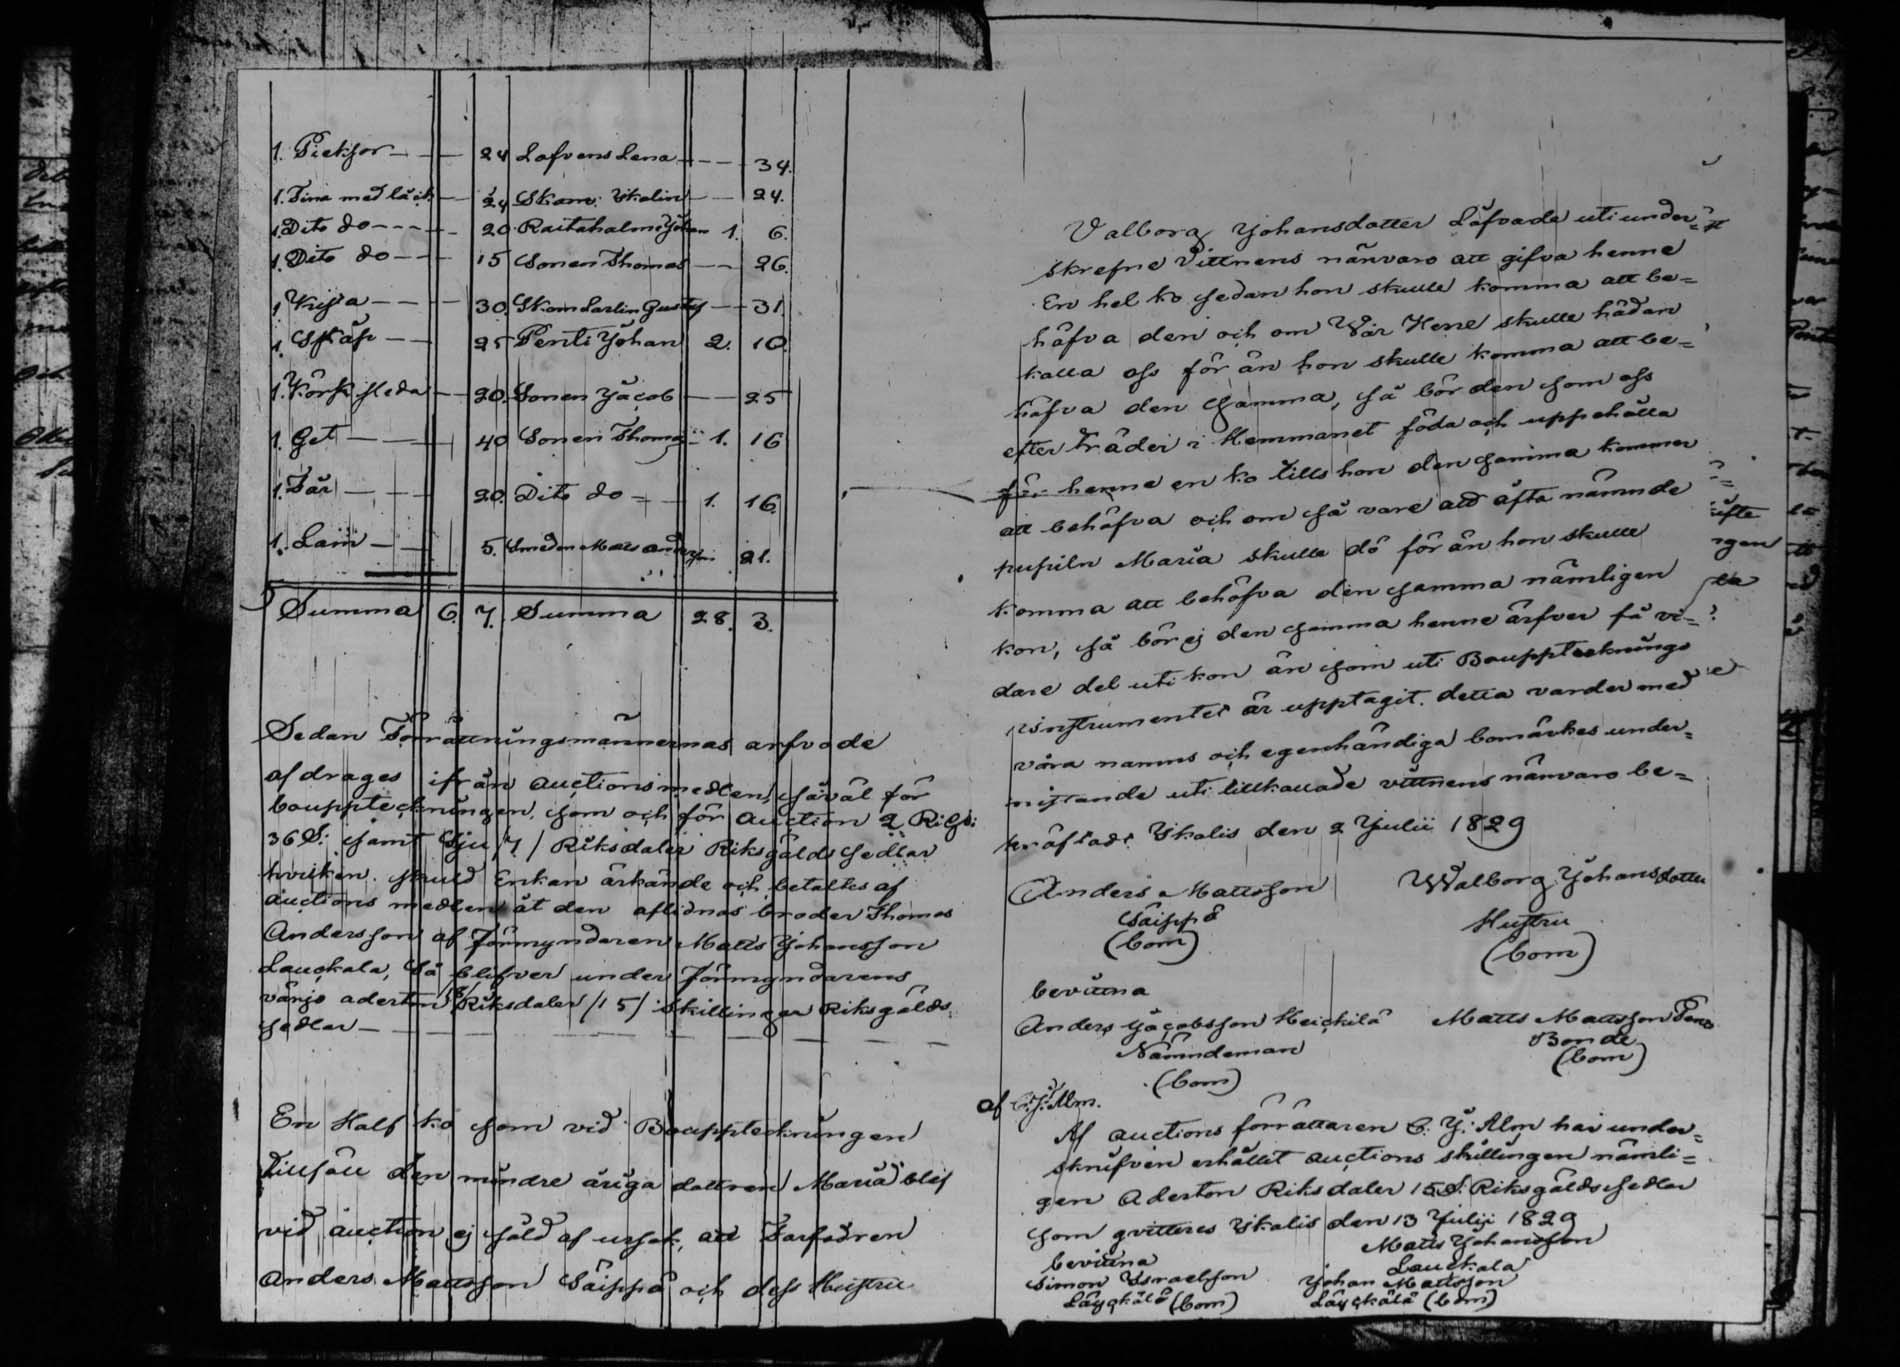 1. Piekjor — — 24 Lofvens Lena — — 34.
1. Tina med låck — 24 Skom: Ykalin — — 24.
1. Dito do — — — 20 Raitahalme Johan 1. 6.
1. Dito do — — 15 Sonen Thomas — — 26.
1. Kista — — — 30. Skom Larlin Gustaf — 31.
1. Skåp — — 25 Penti Johan 2. 10.
1. Körsk sleda — 20. Sonen Jacob — — 25
1. Get — — — 40 Sonen Thomas 1. 16
1. Får — — — 20. Dito do — 1. 16.
1. Lam — — 5. Smeden Mats 21.
Summa 6. 7. Summa 28. 3.
Sedan Förrättningsmännernas arfvode
afdrages ifrån auctionsmedlen, såväl för
bouppteckningen, som och för auction 2 RiGs:
36 S: samt Sju /7/ Riksdaler Riksgälds sedlar
hvilken skuld Enkan ärkände och betaltes af
auctions medlen åt den aflidnas broder Thomas
Andersson af Förmyndaren Matts Johansson
Lauckala, Så blifver under Förmyndarens
värjo aderton /18/ Riksdaler /15/ Skillingar Riksgälds
sedlar —
En Half ko som vid Bouppteckningen
Tillföll den mindre åriga dottren Maria blef
vid auction ej såld af orsak, att Farfadren
Anders Mattsson Säippä och dess Hustru
Valborg Johansdotter Låfvade uti under=
skrefne Vittnens närvaro att gifva henne
En hel ko sedan hon skulle komma att be=
höfva den och om Wår Herre skulle hädan
kalla oss för än hon skulle komma att be=
höfva den samma, så bör den som oss
efter träder i Hemmanet föda och uppehålla
för henne en ko tills hon den samma kommer
att behöfva och om så vare att åfta nämnde
pupiln Maria skulle dö för än hon skulle
komma att behöfva den samma nämligen
kon, så bör ej den samma henne ärfver få vi=
dare del uti kon än som uti Bouppteknings
instrumentet är upptagit. detta varder med
våra namns och egenhändiga bomärkes under=
uti tillkallade vittnens närvaro be=
kräftadt Ykalis den 2 Julii 1829
Anders Mattsson Walborg Johansdotter
Säippä Hustru
(bom) (bom)
bevittna
Anders Jacobsson Heickilä Matts Mattsson
Nämndeman Bonde
(bom) (bom)
af C: J: Alm.
Af auctions förrättaren C. J: Alm har under=
skrifven erhållit auctions skillingen nämli=
gen Aderton Riksdaler 15 S. Riksgälds sedlar
som qvitteres Ykalis den 13 Julii 1829
Matts Johansson
bevittna Lauckala
Simon Israelsson Johan Mattsson
Läyckälä (bom) Läyckälä (bom)